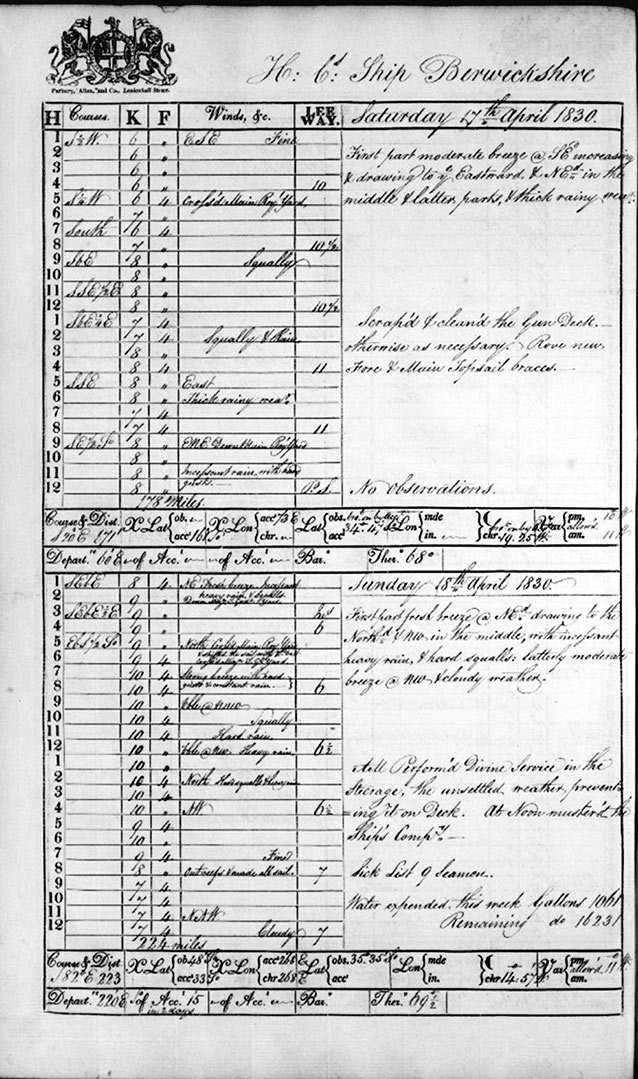 Parbury, Allen, and Co., Leadenhall Street.
H: C:s Ship Berwickshire
H Courses. K F Winds, &c. LEE WAY. Saturday 17th April 1830.
1 6 „ ESE Fine
2 6 „ First part moderate breeze @ SEo increasing
3 6 „ & drawing to ye Eastward & NEd in the
4 6 „ 10 middle & latter parts, & thick rainy
5 6 4 Cross'd Main Royl Yard
6 7 „
7 South 6 4
8 7 „ 10½
9 SbE 8 „ Squally
10 8 „
11 SSE½E 8 „
12 8 „ 10½
1 7 4 Scrap'd & clean'd the Gun Deck.—
2 7 4 Squally & Rain otherwise as necessary. Rove new
3 8 „ Fore & Main Topsail braces.—
4 8 4 11
5 SSE 8 „ East
6 8 „ Thick rainy
7 7 4
8 8 „ 11
9 8 „ ENE Down Main Royl Yard
10 8 „
11 8 „ Incessant rain with hard
12 8 „ gusts P.S. No Observations.
178 Miles
Course & Dist. X Lat {ob. acct X Lon {acct 73 E chr. Lat {obs. acct Lon {mde in. chr 19.25 W Var {pm. allow'd am.
S20°E 171
Depart. 60 E of Acc. of Acc. Bar. Ther. 68°
1 SEbE 8 4 NE Fresh breeze Incessant Sunday 18th April 1830.
2 9 „ heavy rain & Squalls
3 9 „ First part fresh breeze @ NEd drawing to the
4 9 „ 6 Northd & NW in the middle, with incessant
5 9 „ North Cross'd Main Royl Yard heavy rain, & hard squalls: latterly moderate
6 9 4 breeze @ NW & cloudy weather.
7 10 4 Strong breeze with hard
8 10 4 gusts & constant rain. 6
9 10 „ Vble @ NNW
10 10 4 Squally
11 10 4 Hard rain.
12 10 „ Vble @ NW Heavy rain 6½
1 10 „ A.M. Perform'd Divine Service in the
2 10 4 North Hard squalls & heavy rain Steerage, the unsettled weather prevent-
3 10 4 =ing it on Deck. At Noon muster'd the
4 10 „ NW 6½ Ship's Compy.—
5 9 4
6 10 „
7 9 4 Fine
8 8 „ Out reefs & made all sail. 7 Sick List 9 Seamen.
9 7 4
10 7 4 Water expended this week Gallons 1061
11 7 4 NNW Remaining do 16231
12 7 4 Cloudy 7
224 miles
Course & Dist. X Lat {ob. 48 S acct 33 S X Lon {acct 268 E chr 268 E Lat {obs. 35.35 S acct Lon {mde in. chr 14.57 W Var {pm. allow'd 11 W am.
S82°E 223
Depart. 220 E S of Acc. 15 in 2 days of Acc. Bar. Ther. 69½